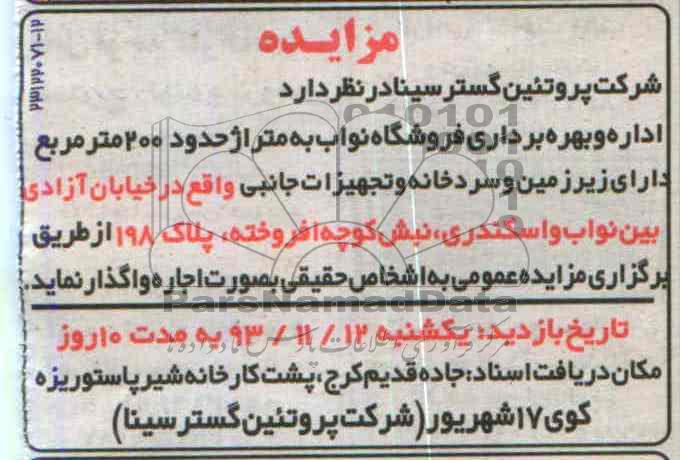 مزایده
شرکت پروتئین گستر سینا در نظر دارد
اداره و بهره برداری فروشگاه نواب به متراژ حدود ۲۰۰ متر مربع
دارای زیرزمین و سردخانه و تجهیزات جانبی واقع در خیابان آزادی
بین نواب و اسکندری، نبش کوچه افروخته، پلاک ۱۹۸ از طریق
برگزاری مزایده عمومی به اشخاص حقیقی بصورت اجاره واگذار نماید.
ParsNamadData
تاریخ بازدید: یکشنبه ۱۲ / ۱۱ / ۹۳ به مدت ۱۰ روز
مکان دریافت اسناد: جاده قدیم کرج، پشت کارخانه شیر پاستوریزه
کوی ۱۷ شهریور (شرکت پروتئین گستر سینا)